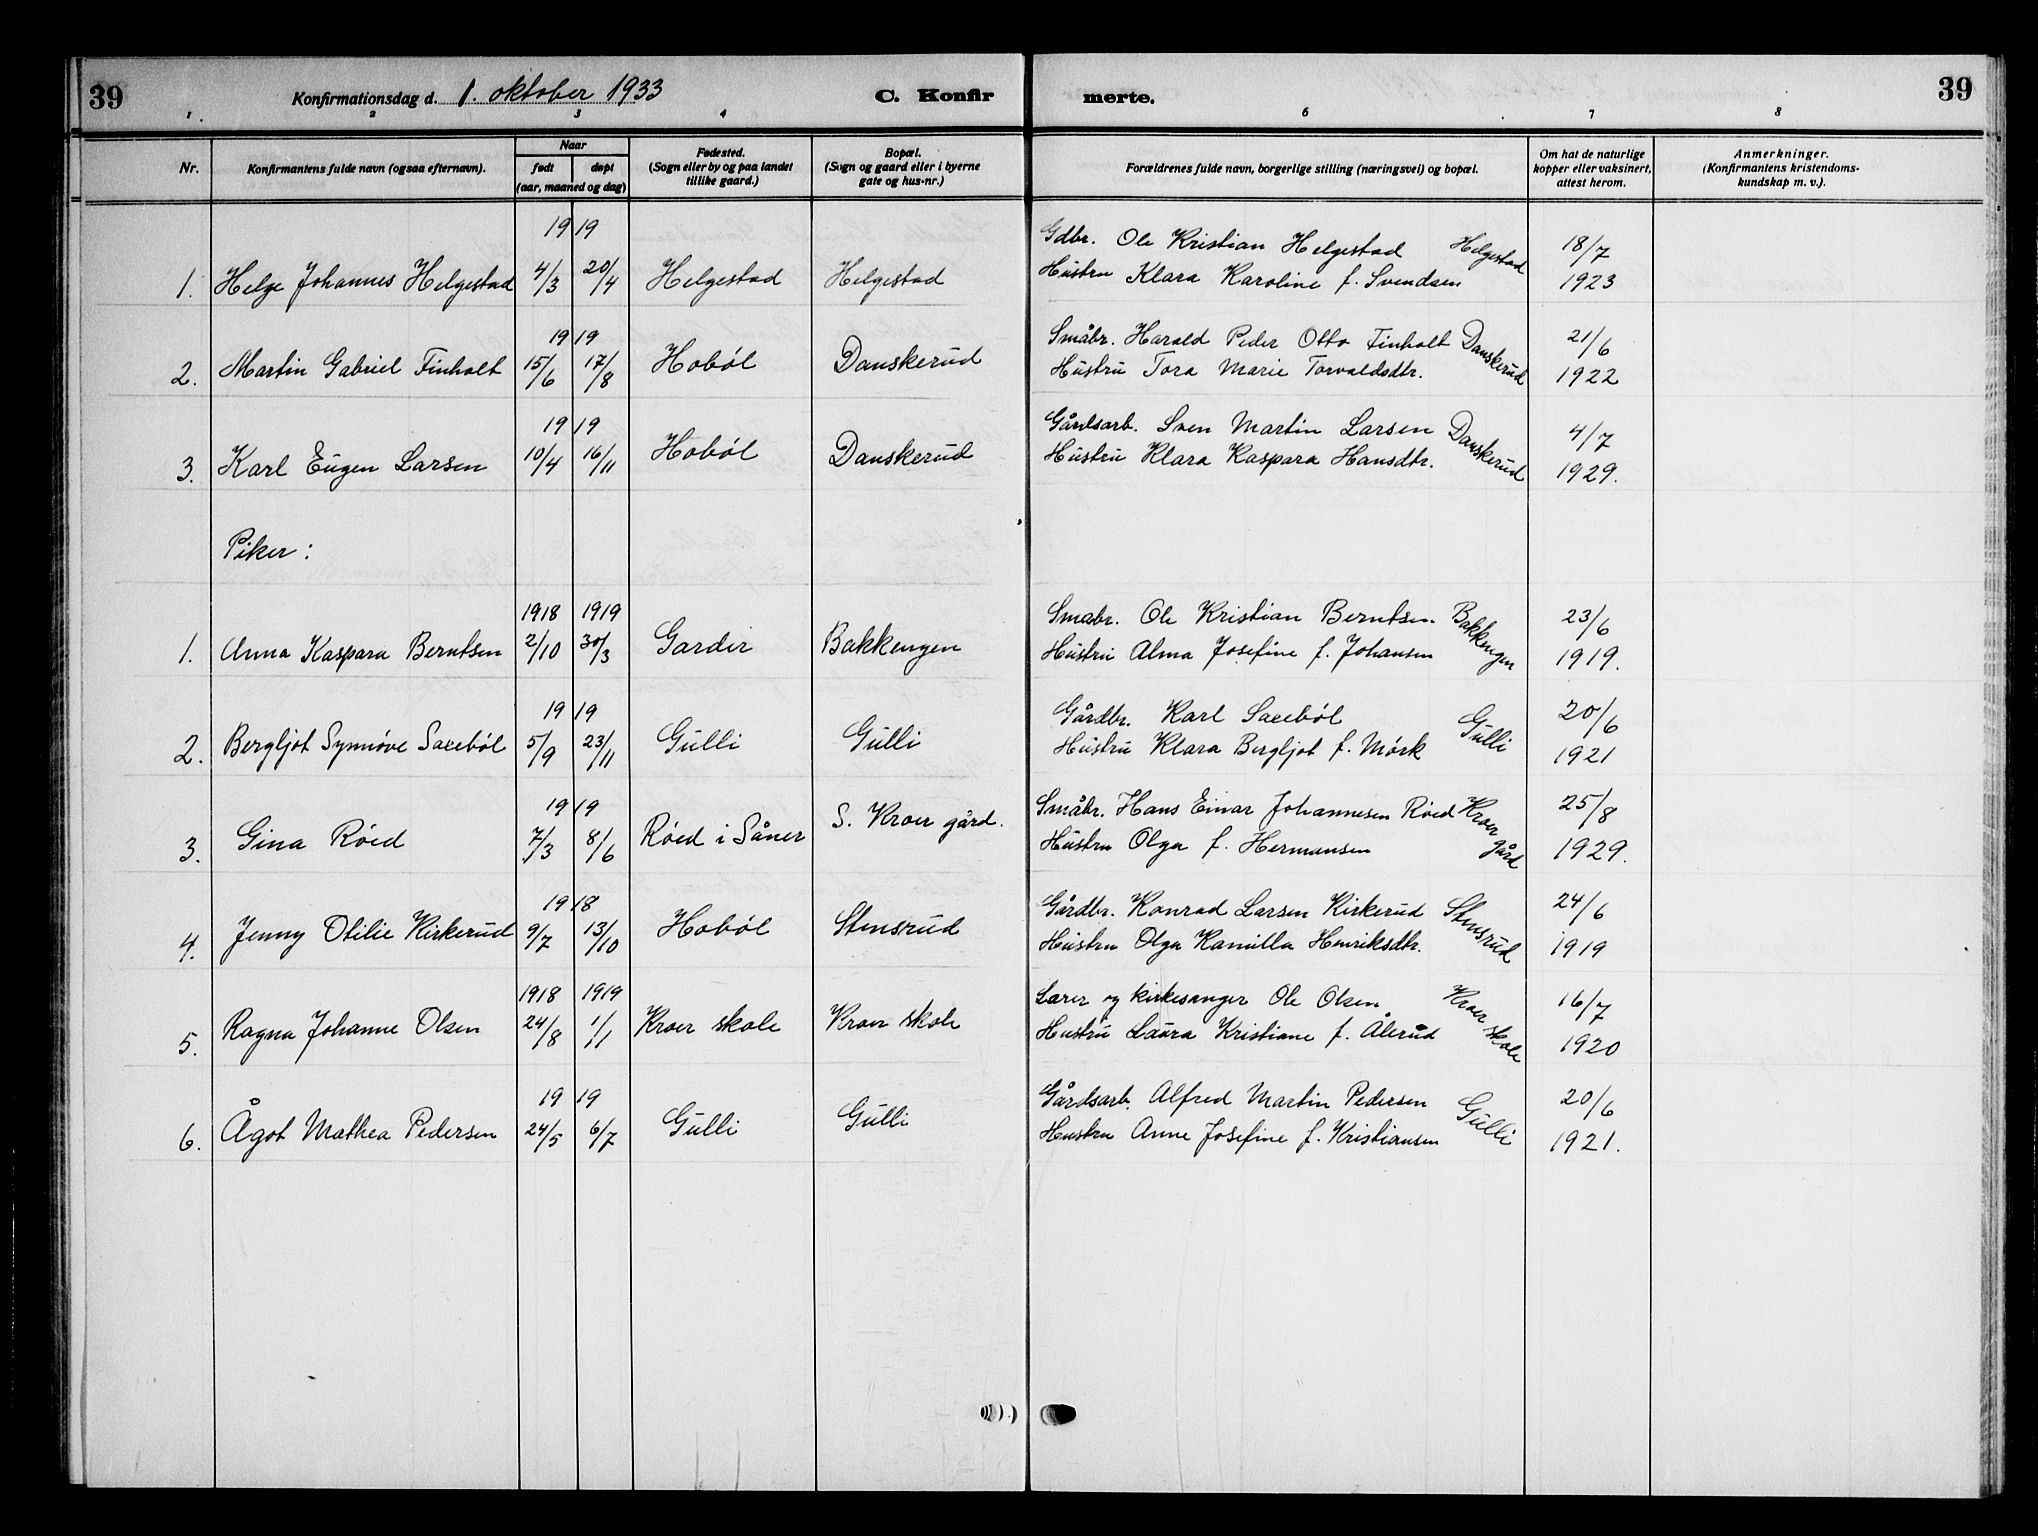 39 Konfirmationsdag d. 1. oktober 1933 C. Konfir merte. 39
1 2 3 4 6 7 8
Nr. Konfirmantens fulde navn (ogsaa efternavn). Naar født døpt (aar, maaned og dag) Fødested. (Sogn eller by og paa landet tillike gaard.) Bopæl. (Sogn og gaard eller i byerne gate og hus-nr.) Forældrenes fulde navn, borgerlige stilling (næringsvei) og bopæl. Om hat de naturlige kopper eller vaksinert, attest herom. Anmerkninger. (Konfirmantens kristendoms-kundskap m. v.).
19 19 Gdbr. Ole Kristian Helgestad Helgestad 18/7
1. Helge Johannes Helgestad 4/3 20/4 Helgestad Helgestad Hustru Klara Karoline f. Svendsen 1923
19 19 Småbr. Harald Peder Otto Finholt Danskerud 21/6
2. Martin Gabriel Finholt 15/6 17/8 Hobøl Danskerud Hustru Tora Marie Torvaldsdtr. 1922
19 19 Gårdsarb. Sven Martin Larsen Danskerud 4/7
3. Karl Eugen Larsen 10/4 16/11 Hobøl Danskerud Hustru Klara Kaspara Hansdtr. 1929.
Piker:
1918 1919 Småbr. Ole Kristian Berntsen. Bakkengen 23/6
1. Anna Kaspara Berntsen 2/10 30/3 Garder Bakkengen Hustru Alma Josefine f. Johansen 1919.
19 19 Gårdbr. Karl Saxebøl Gulli 20/6
2. Bergljot Synnøve Saxebøl 5/9 23/11 Gulli Gulli Hustru Klara Bergljot f. Mørk 1921
19 19 Småbr. Hans Einar Johannesen Røed Kroer gård 25/8
3. Gina Røed 7/3 8/6 Røed i Såner S. Kroer gård. Hustru Olga f. Hermansen 1929.
19 18 Gårdbr. Konrad Larsen Kirkerud Stensrud 24/6
4. Jenny Otilie Kirkerud 9/7 13/10 Hobøl Stensrud Hustru Olga Kamilla Henriksdtr. 1919
1918 1919 Lærer og kirkesanger Ole Olsen Kroer skole 16/7
5. Ragna Johanne Olsen 24/8 1/1 Kroer skole Kroer skole Hustru Laura Kristiane f. Ålerud 1920
19 19 Gårdsarb. Alfred Martin Pedersen Gulli 20/6
6. Ågot Mathea Pedersen 24/5 6/7 Gulli Gulli Hustru Anne Josefine f. Kristiansen 1921.